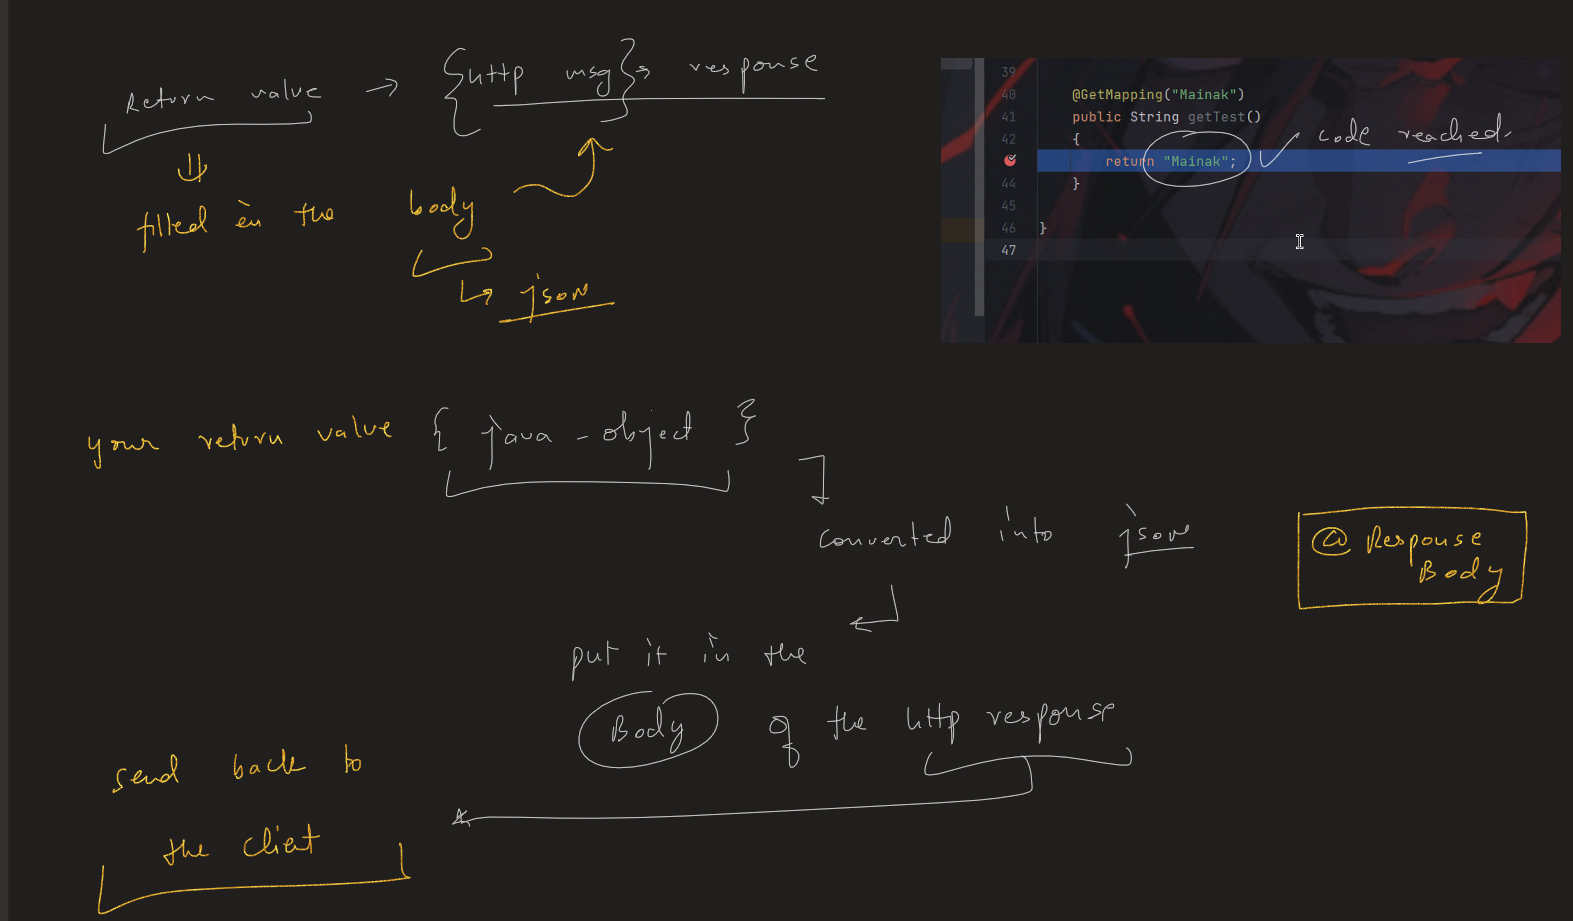 Return value → {http msg} → response
⇓
filled in the body
↳ json
39
40 @GetMapping("Mainak")
41 public String getTest()
42 {
return "Mainak"; ✓ code reached.
44 }
45
46 }
47
your return value { java - object }
converted into json
@ Response
Body
put it in the
Body of the http response
send back to
the client